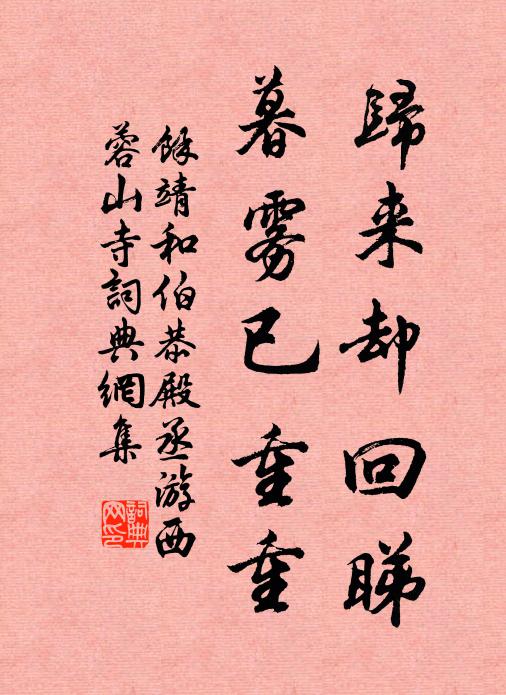 歸来却回睇
暮雾已重重
餘靖和伯恭殿丞游西
蓉山寺詞典網集
詞典网印